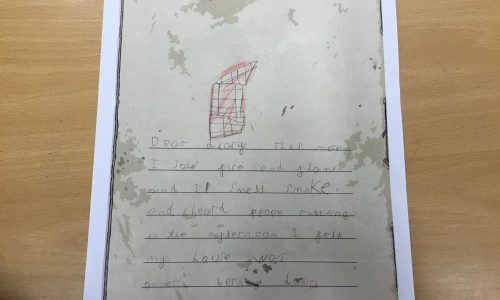 Dear diary this morn
I saw fire and flames
and I smelt smoke.
and heard people running
in the afternoon I felt
my house was
burning down.